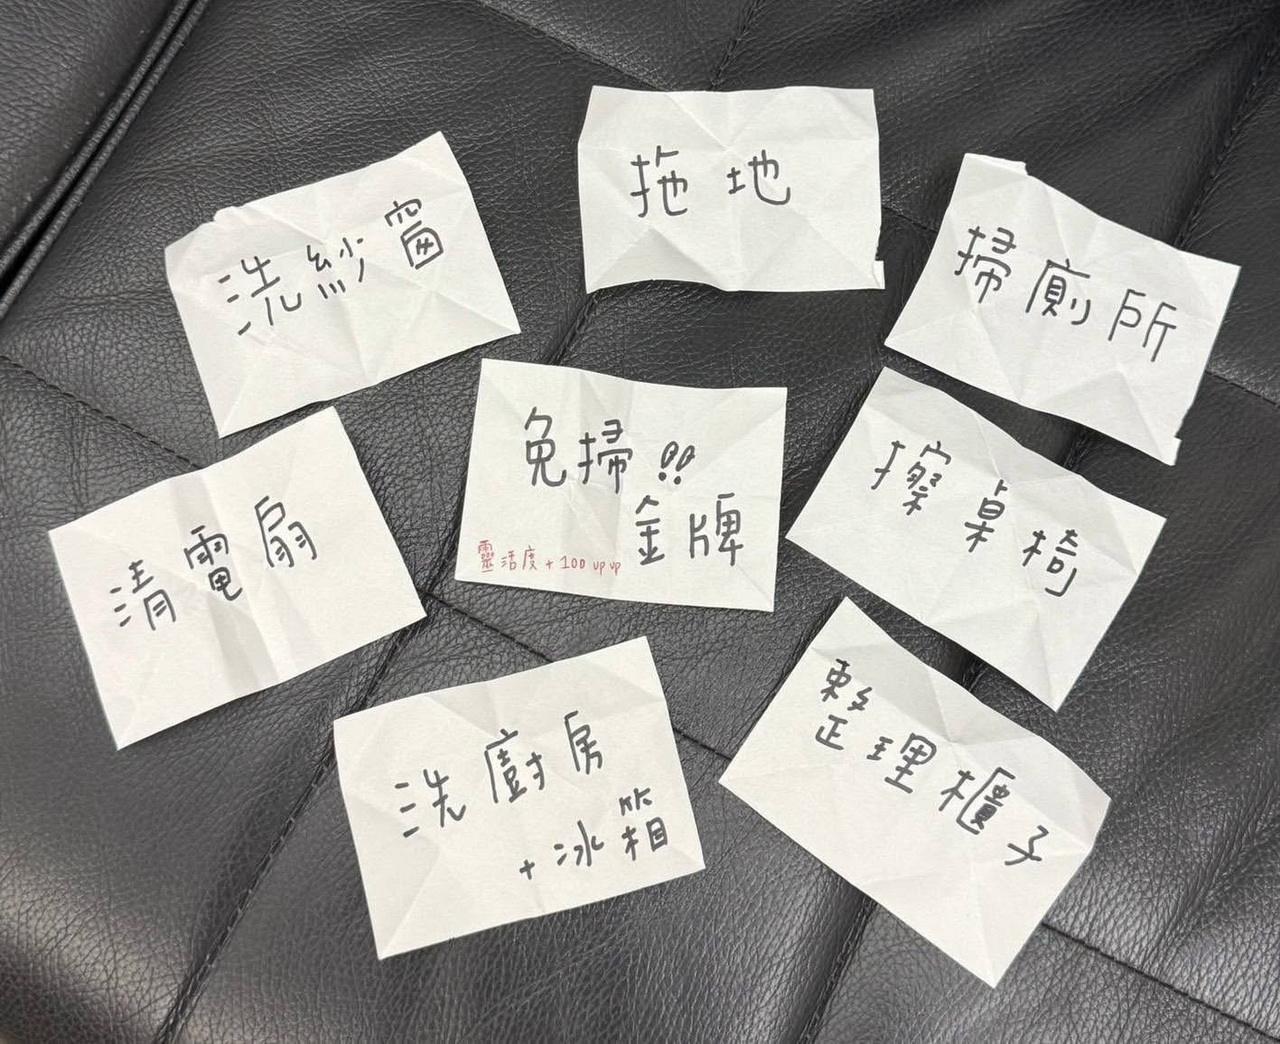 拖地
洗紗窗
掃廁所
免掃!!
金牌
靈活度+100 up up
擦桌椅
清電扇
洗廚房
+冰箱
整理櫃子